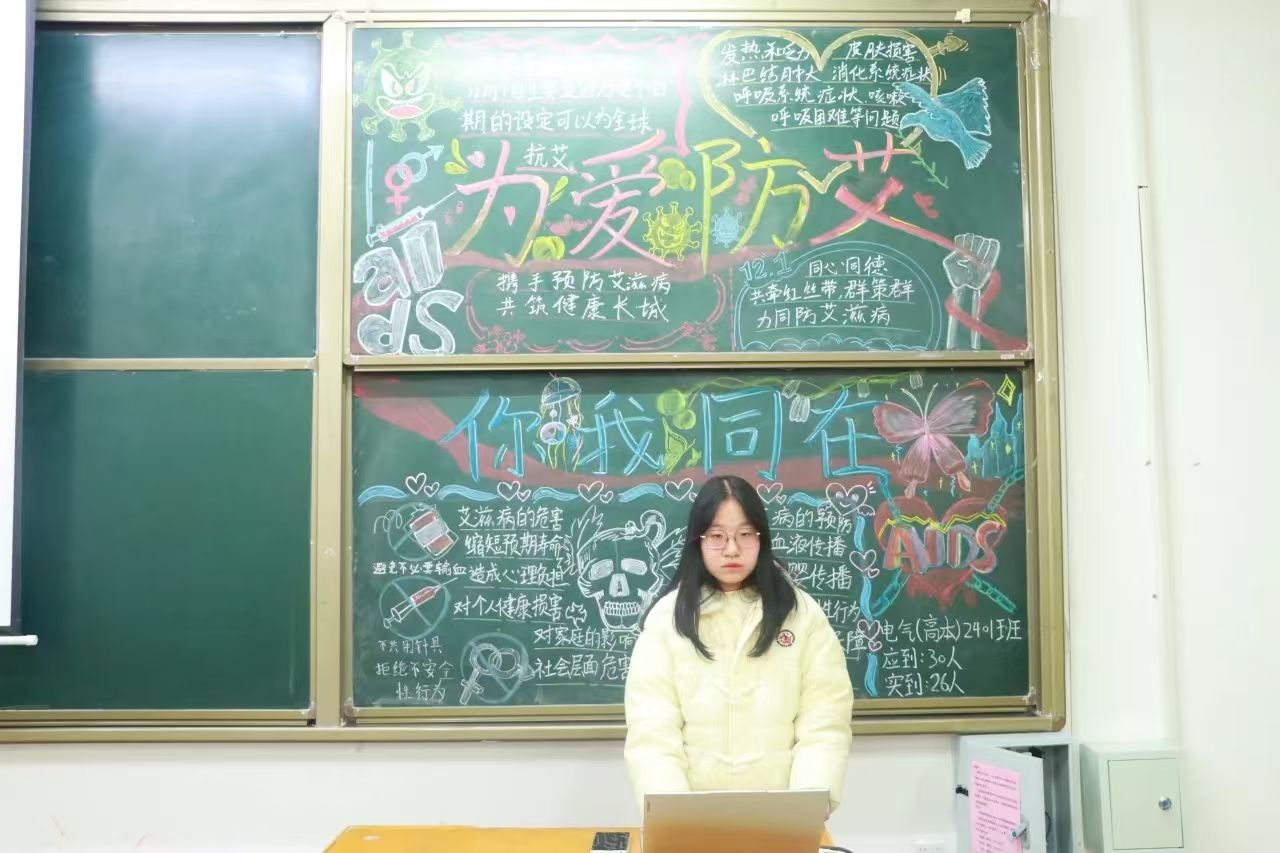 期的设定可以为全球
发热和乏力 皮肤损害
淋巴结肿大 消化系统症状
呼吸系统症状、咳嗽
呼吸困难等问题
抗艾
为爱防艾
aIds
携手预防艾滋病
共筑健康长城
12.1
同心同德
共牵红丝带,群策群
力同防艾滋病
你我同在
艾滋病的危害
缩短预期寿命
避免不必要输血
造成心理负担
对个人健康损害
对家庭的影响
社会层面危害
不共用针具
拒绝不安全
性行为
病的预防
血液传播
婴传播
性行为
障
AIDS
电气(高本)2401班
应到:30人
实到:26人